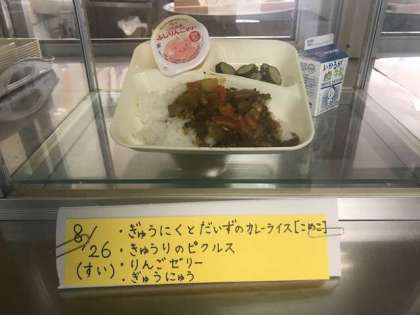 8/26
(すい)
・ぎゅうにくとだいずのカレーライス[こめこ]
・きゅうりのピクルス
・りんごゼリー
・ぎゅうにゅう